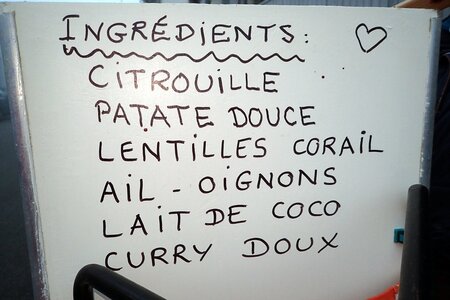 INGRÉDIENTS:
CITROUILLE
PATATE DOUCE
LENTILLES CORAIL
AIL - OIGNONS
LAIT DE COCO
CURRY DOUX